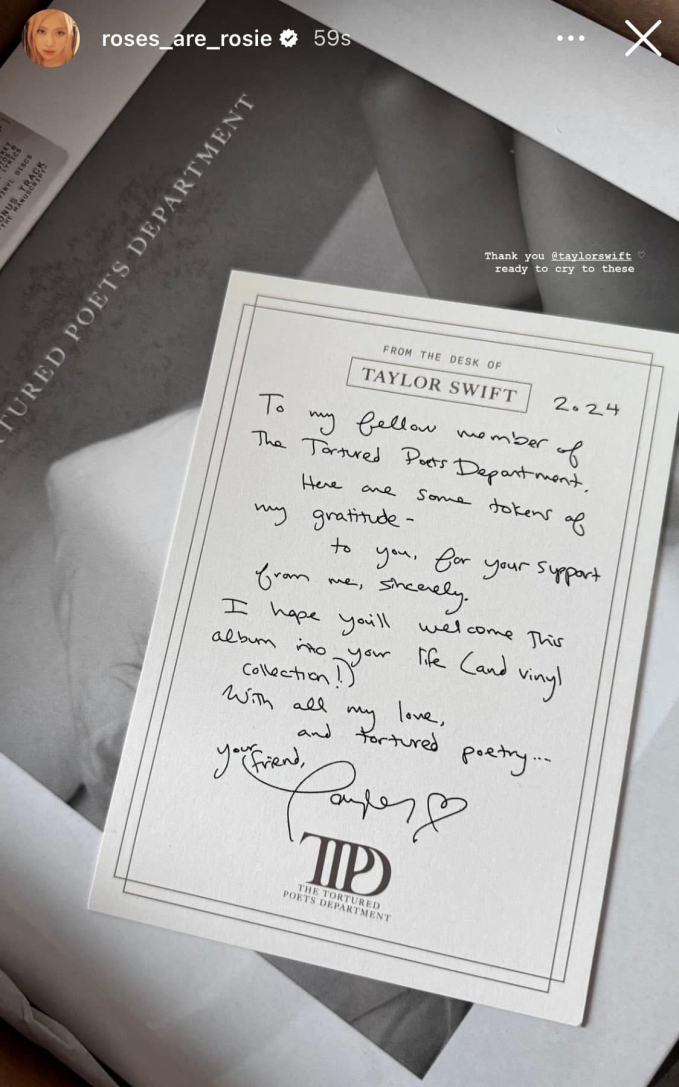 roses_are_rosie 59s
TORTURED POETS DEPARTMENT
BONUS TRACK
Thank you @taylorswift ♡
ready to cry to these
FROM THE DESK OF
TAYLOR SWIFT
2024
To my fellow member of
The Tortured Poets Department.
Here are some tokens of
my gratitude -
to you, for your support
from me, sincerely.
I hope you'll welcome this
album into your life (and vinyl
collection!)
With all my love,
and tortured poetry...
your friend,
Taylor ♡
TTPD
THE TORTURED
POETS DEPARTMENT